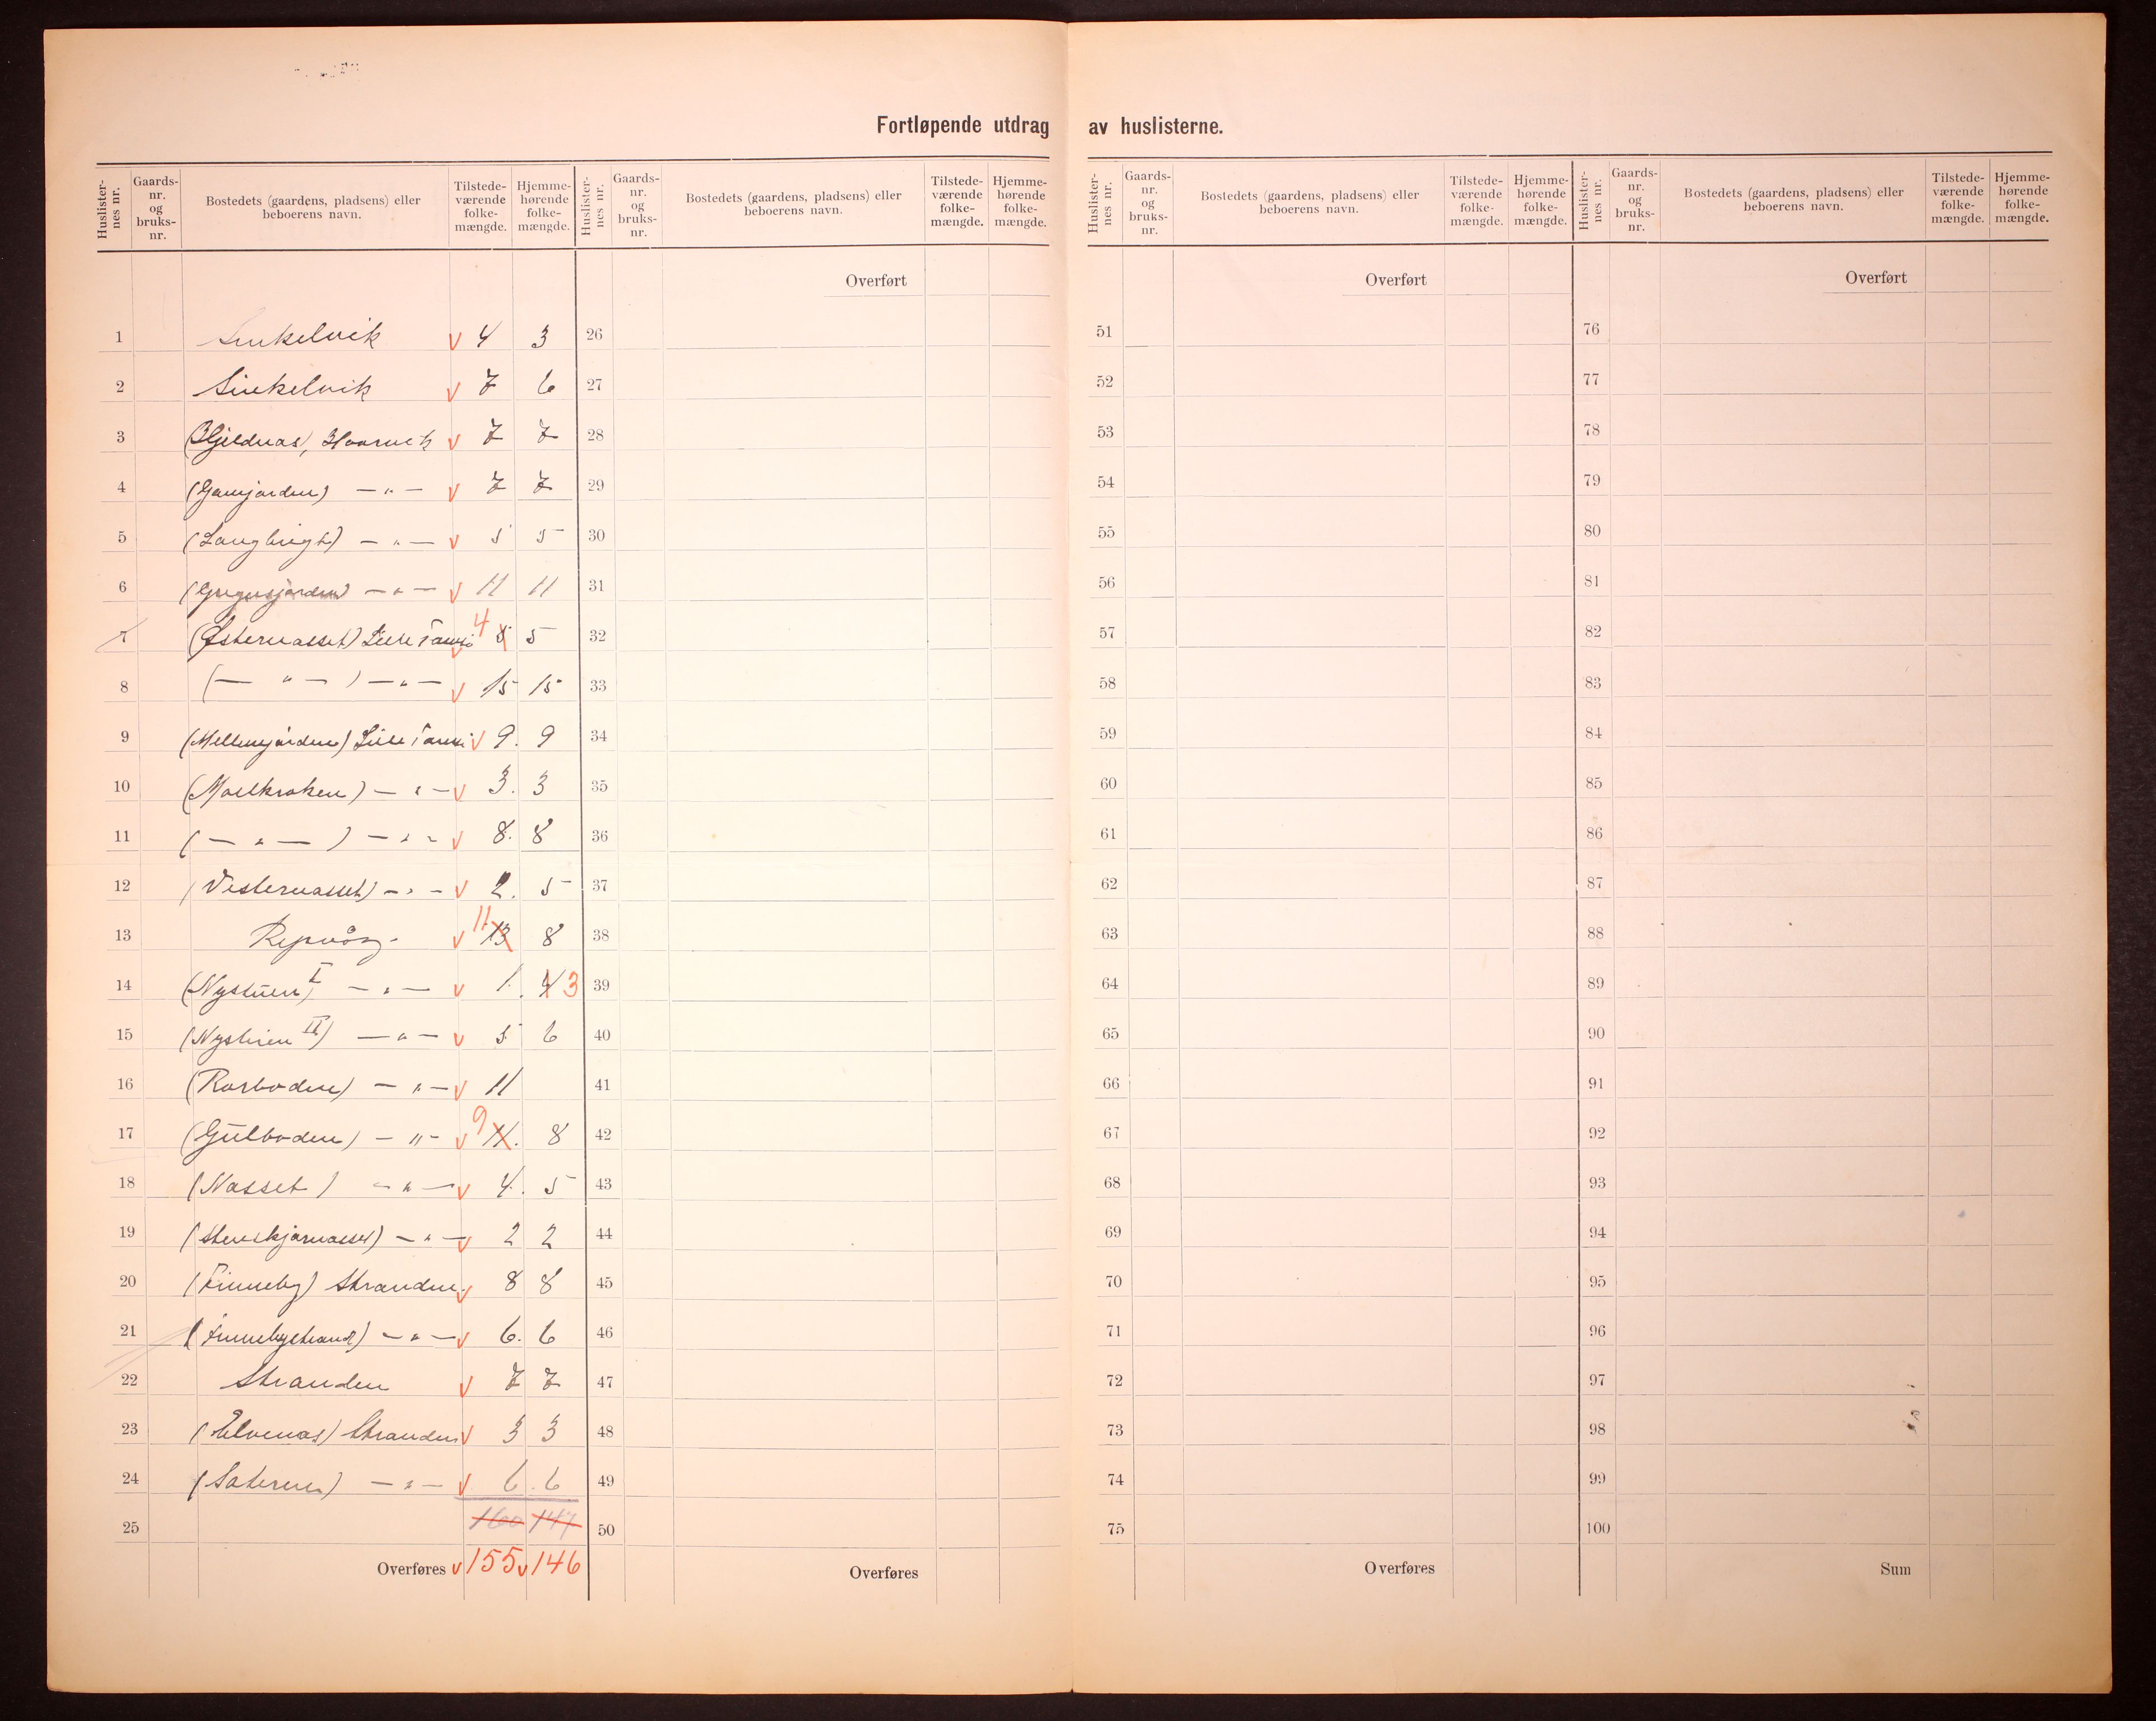 Fortløpende utdrag av huslisterne.
Huslister-nes nr. Gaards-nr. og bruks-nr. Bostedets (gaardens, pladsens) eller beboerens navn. Tilstede-værende folke-mængde. Hjemme-hørende folke-mængde.
Huslister-nes nr. Gaards-nr. og bruks-nr. Bostedets (gaardens, pladsens) eller beboerens navn. Tilstede-værende folke-mængde. Hjemme-hørende folke-mængde.
Huslister-nes nr. Gaards-nr. og bruks-nr. Bostedets (gaardens, pladsens) eller beboerens navn. Tilstede-værende folke-mængde. Hjemme-hørende folke-mængde.
Huslister-nes nr. Gaards-nr. og bruks-nr. Bostedets (gaardens, pladsens) eller beboerens navn. Tilstede-værende folke-mængde. Hjemme-hørende folke-mængde.
1 Sinkelvik v 4 3
2 Sinkelvik v 7 6
3 v 7 7
4 (Gamjorden) — " — v 7 7
5 — " — v 5 5
6 — " — v 11 11
7 (Østernasset) Lille Tamsø v 4 5 5
8 (— " —) — " — v 15 15
9 (Mellemjorden) Lille Tamsø v 9. 9
10 (Mollkroken) — " — v 3. 3
11 (— " —) — " — v 8. 8
12 (Vesternasset) — " — v 2. 5
13 Repvåg. v 11 13 8
14 (Nystuen I) — " — v 1. 4 3
15 (Nystuen II) — " — v 5 6
16 (Rorboden) — " — v 11
17 (Gulboden) — " — v 9 11. 8
18 (Nasset) — " — v 4. 5
19 (Stenskjarnasset) — " — v 2 2
20 (Finneby) Stranden. v 8 8
21 (Finnebystrand) — " — v 6. 6
22 Stranden v 7 7
23 (Elvenas) Stranden v 3 3
24 — " — v 6. 6
25 160 147
Overføres v 155 v 146
Overført
26
27
28
29
30
31
32
33
34
35
36
37
38
39
40
41
42
43
44
45
46
47
48
49
50
Overføres
Overført
51
52
53
54
55
56
57
58
59
60
61
62
63
64
65
66
67
68
69
70
71
72
73
74
75
Overføres
Overført
76
77
78
79
80
81
82
83
84
85
86
87
88
89
90
91
92
93
94
95
96
97
98
99
100
Sum